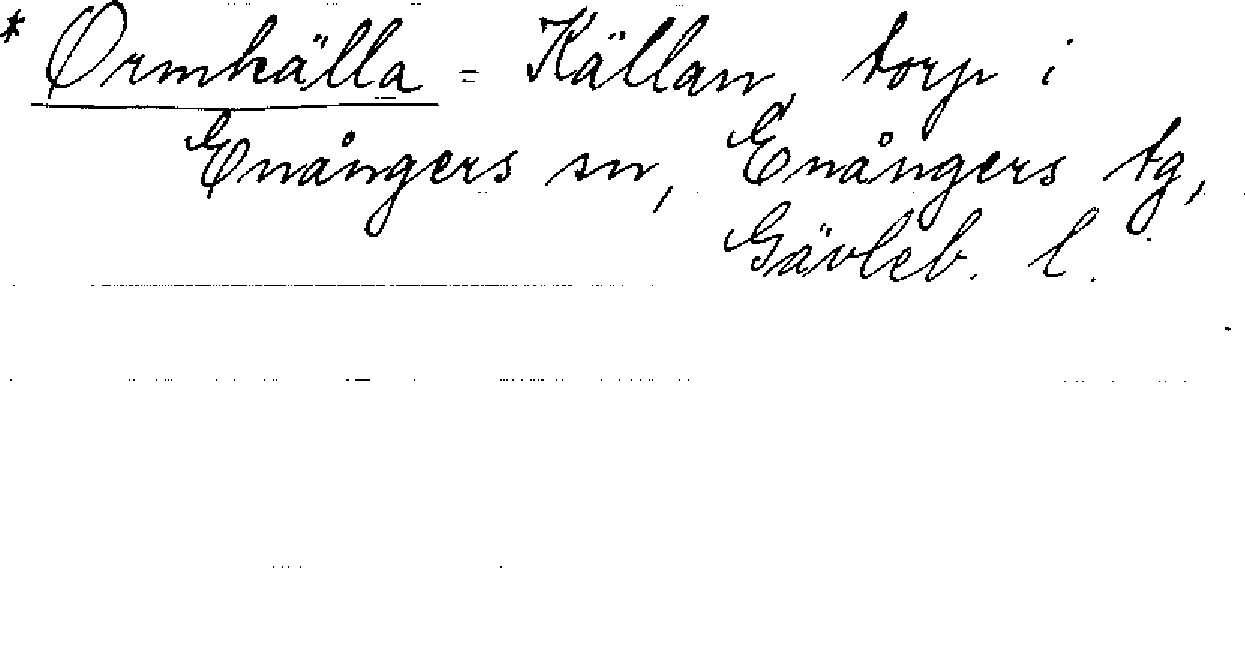 * Ormkälla = Källan, torp i
Enångers sn, Enångers tg,
Gävleb. l.